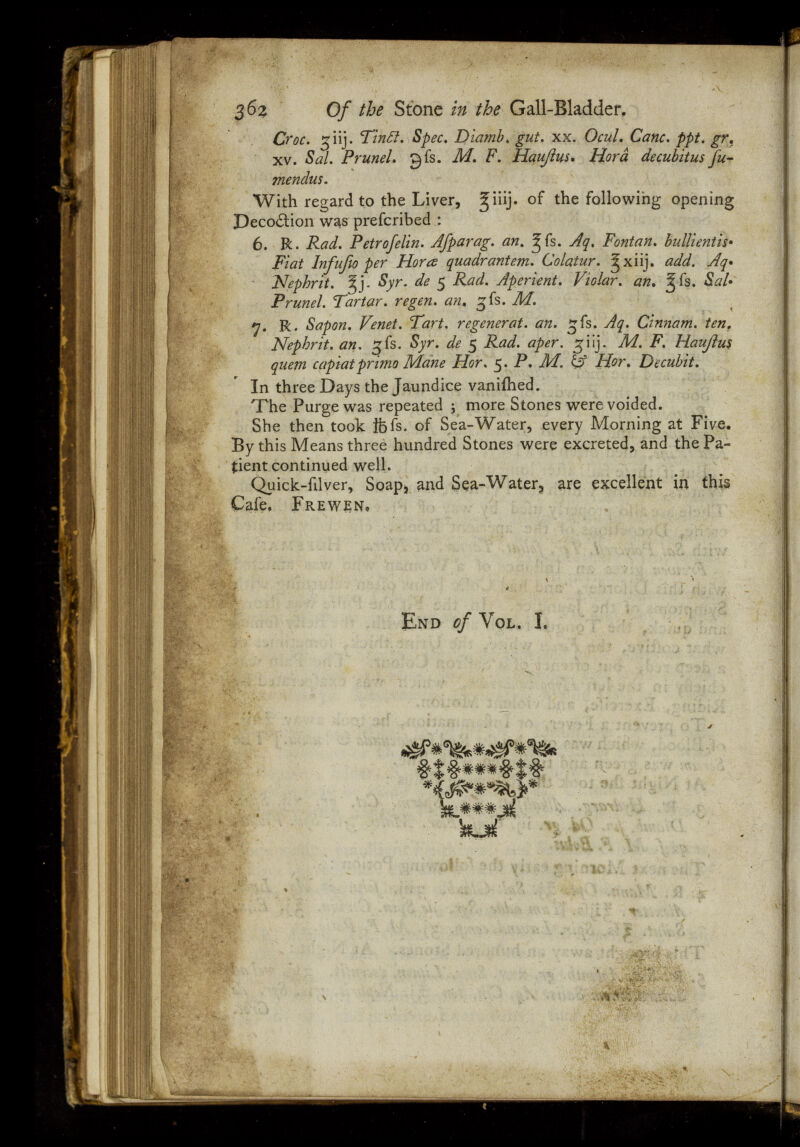 362 Of the Stone in the Gall-Bladder.
Croc. ʒiij. Tinct. Spec. Diamb. gut. xx. Ocul. Canc. ppt. gr.
xv. Sal. Prunel. ℈ſs. M. F. Hauſtus. Horâ decubitus ſu-
mendus.
With regard to the Liver, ℥iiij. of the following opening
Decoction was preſcribed :
6. ℞. Rad. Petroſelin. Aſparag. an. ℥ſs. Aq. Fontan. bullientis.
Fiat Infuſio per Horæ quadrantem. Colatur. ℥xiij. add. Aq.
Nephrit. ℥j. Syr. de 5 Rad. Aperient. Violar. an. ℥ſs. Sal.
Prunel. Tartar. regen. an. ʒſs. M.
7. ℞. Sapon. Venet. Tart. regenerat. an. ʒſs. Aq. Cinnam. ten.
Nephrit. an. ʒſs. Syr. de 5 Rad. aper. ʒiij. M. F. Hauſtus
quem capiat primo Mane Hor. 5. P. M. & Hor. Decubit.
In three Days the Jaundice vaniſhed.
The Purge was repeated ; more Stones were voided.
She then took ℔ſs. of Sea-Water, every Morning at Five.
By this Means three hundred Stones were excreted, and the Pa-
tient continued well.
Quick-ſilver, Soap, and Sea-Water, are excellent in this
Caſe. FREWEN.
END of VOL. I.